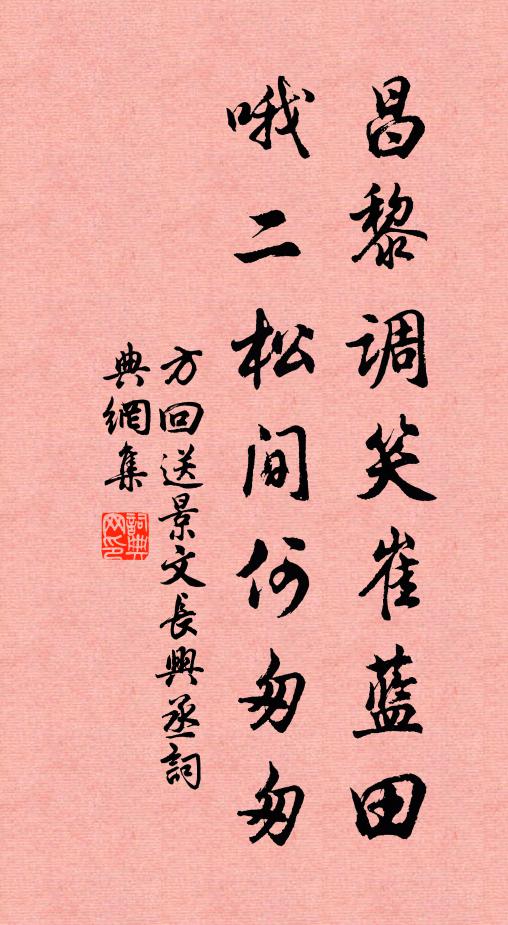 昌黎調笑崔藍田
哦二松間何匆匆
方回送景文長興丞詞
典網集
詞典網印